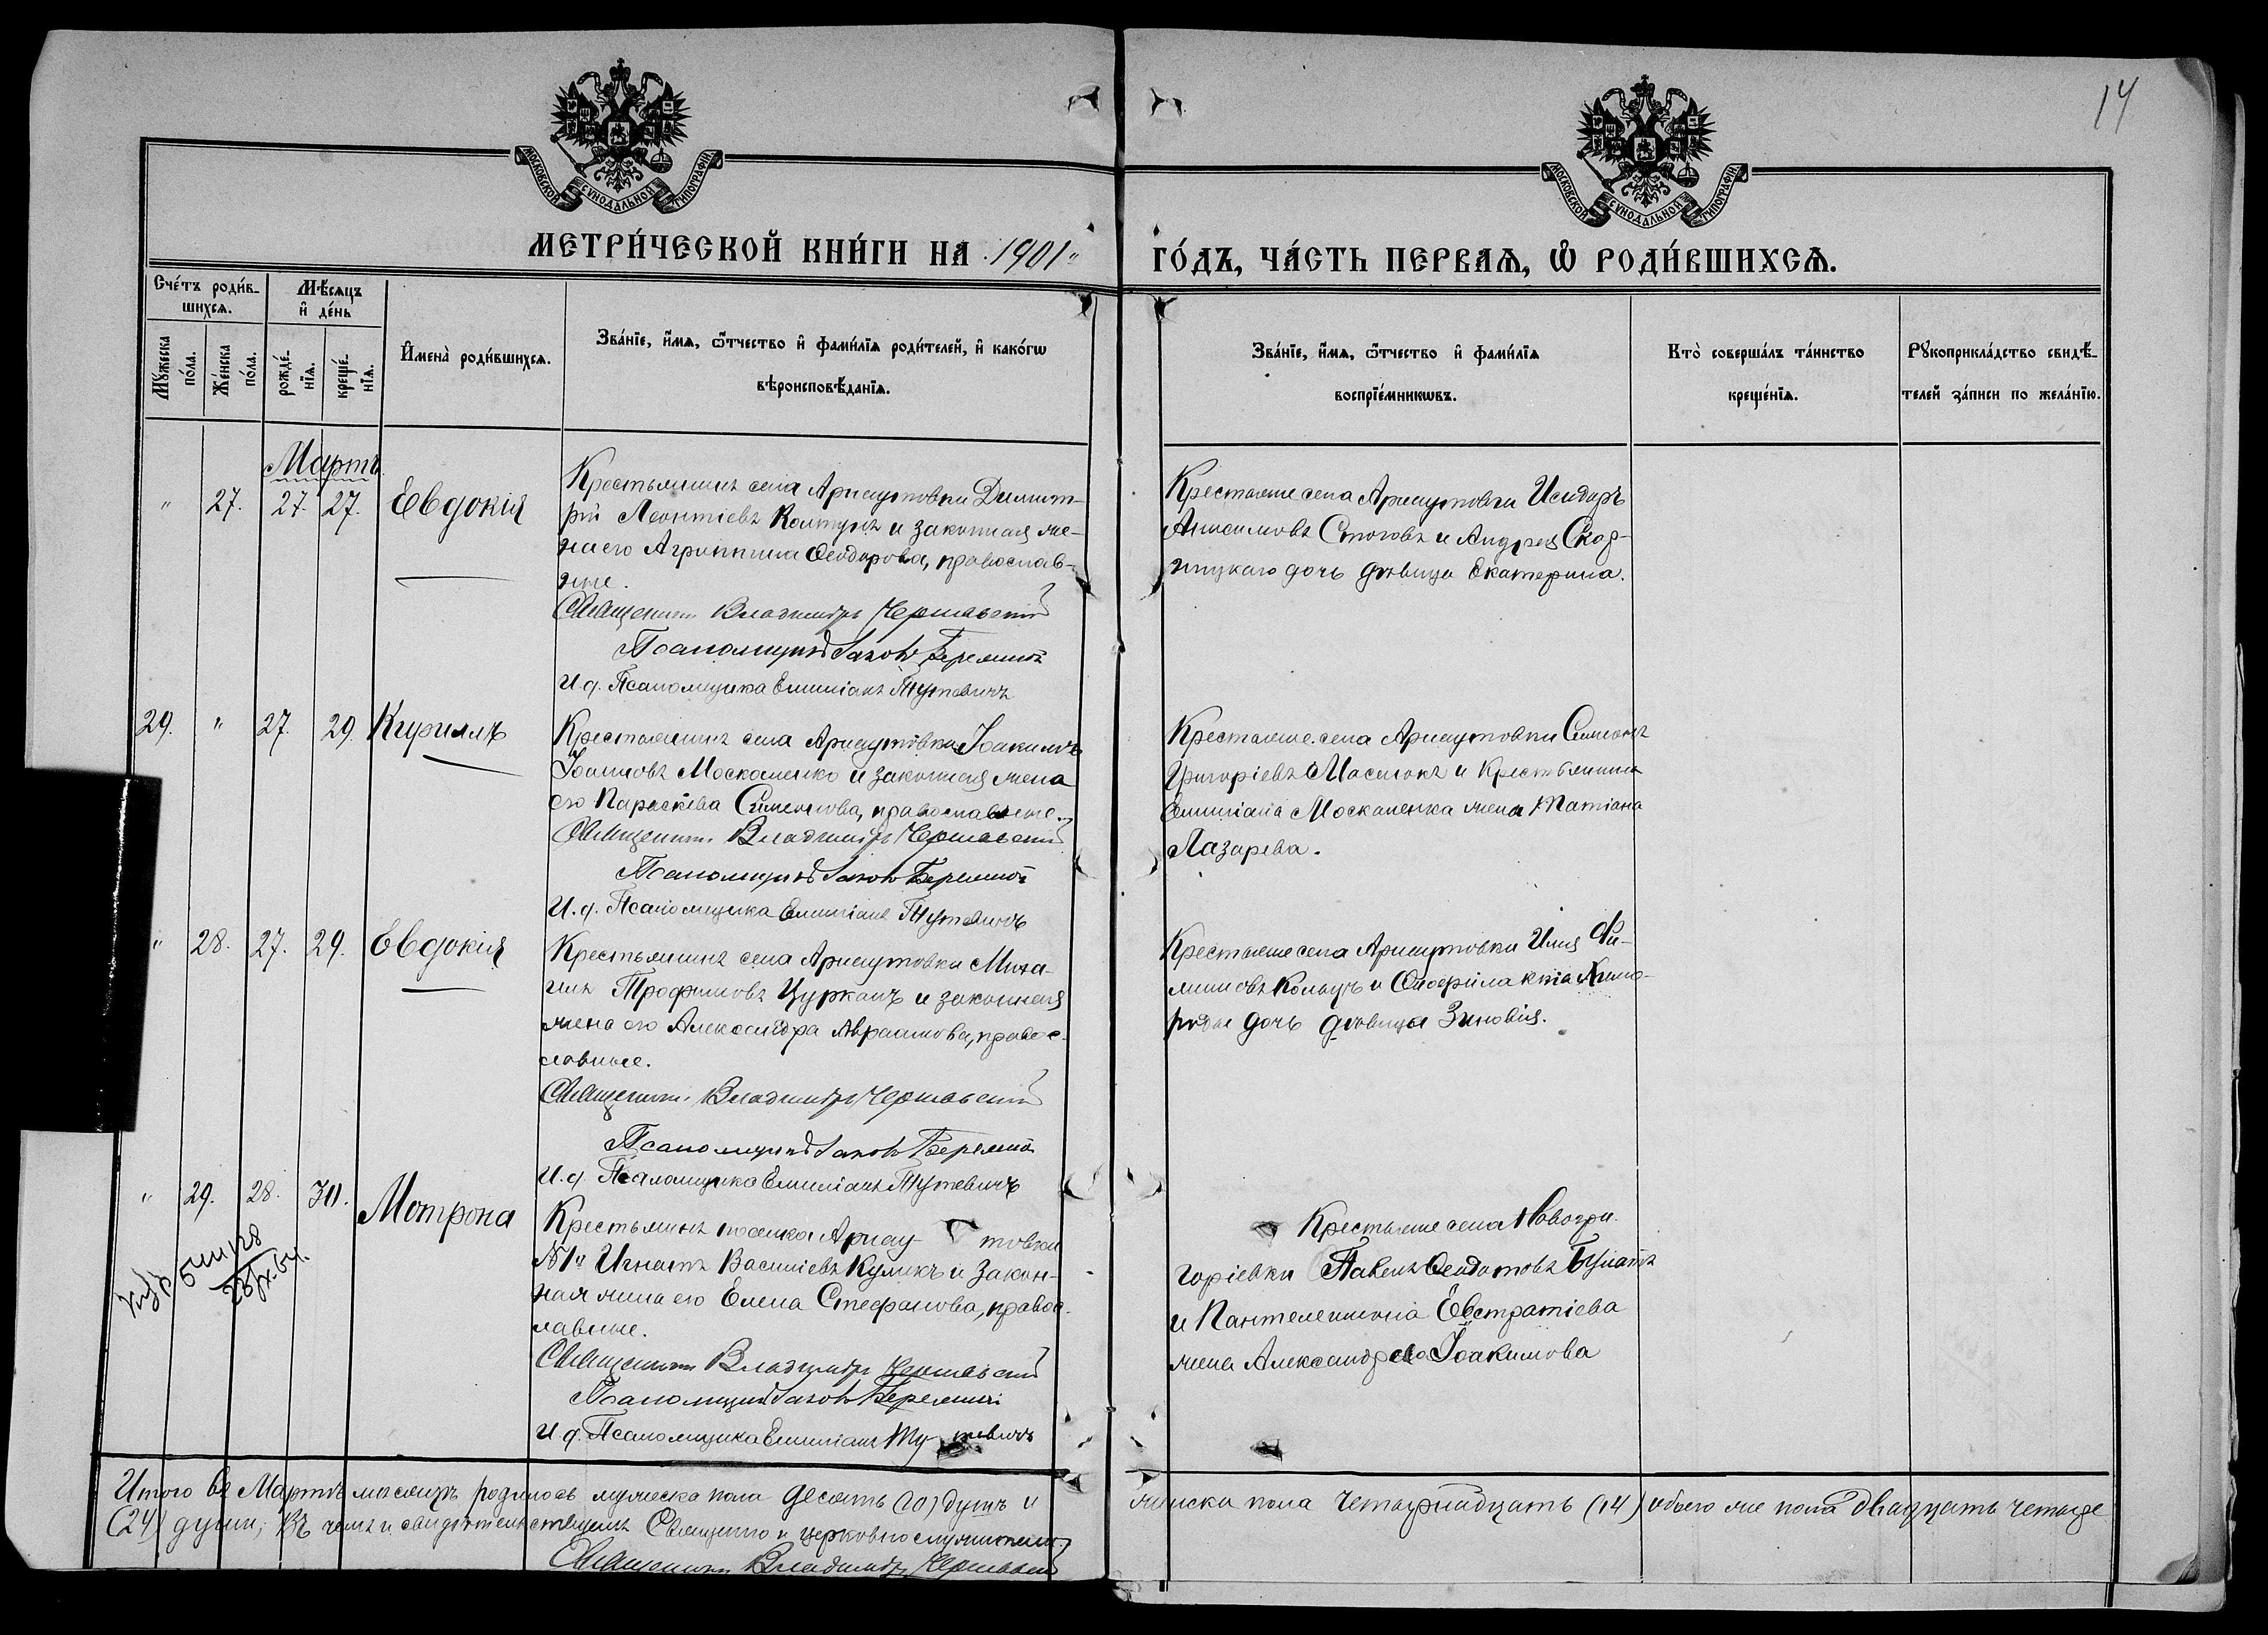 14
МОСКОВСКОЙ СУНОДАЛЬНОЙ ТИПОГРАФІИ
МОСКОВСКОЙ СУНОДАЛЬНОЙ ТИПОГРАФІИ
МЕТРИ́ЧЕСКОЙ КНИ́ГИ НА 1901
ГО́ДЪ, ЧА́СТЬ ПЕРВАѦ, Ѡ РОДИ́ВШИХСѦ.
Сче́тъ роди́в-
шихсѧ.
Мꙋ́жеска по́ла.
Же́нска по́ла.
Мѣ́сѧцъ
и҆ де́нь
рожде́-
нїѧ.
креще́-
нїѧ.
И҆мена̀ роди́вшихсѧ.
Зва́нїе, и҆́мѧ, ѻ҆́тчество и҆ фами́лїѧ роди́телей, и҆ како́гѡ
вѣроисповѣ́данїѧ.
Зва́нїе, и҆́мѧ, ѻ҆́тчество и҆ фами́лїѧ
воспрїе́мникѡвъ.
Кто̀ соверша́лъ та́инство
креще́нїѧ.
Рꙋкоприкла́дство свидѣ́-
телей за́писи по жела́нїю.
Мартъ
" 27. 27. 27. Евдокія
Крестьянинъ села Арнаутовки Димит-
рій Леонтіевъ Колтунъ и законная же-
на его Агрипина Ѳеодорова, православ-
ные.
Священникъ Владиміръ Чернявскій
Псаломщикъ Іаковъ Бережной
И. д. Псаломщика Емиліанъ Тутевичъ
Крестьяне села Арнаутовки Исидоръ
Анисимовъ Стоговъ и Андрея Скад-
ницкаго дочь дѣвица Екатерина.
29. " 27. 29. Кириллъ
Крестьянинъ села Арнаутовки Іоакимъ
Іоанновъ Москаленко и законная жена
его Параскева Симеонова, православные.
Священникъ Владиміръ Чернявскій
Псаломщикъ Іаковъ Бережной
И. д. Псаломщика Емиліанъ Тутевичъ
Крестьяне села Арнаутовки Симеонъ
Григоріевъ Масюкъ и крестьянина
Емиліана Москаленка жена Татіана
Лазарева.
" 28. 27. 29. Евдокія
Крестьянинъ села Арнаутовки Миха-
илъ Трофимовъ Цурканъ и законная
жена его Александра Авраамова, правос-
славные.
Священникъ Владиміръ Чернявскій
Псаломщикъ Іаковъ Бережной
И. д. Псаломщика Емиліанъ Тутевичъ
Крестьяне села Арнаутовки Илія Фи-
липповъ и Ѳеофилакта
дочь дѣвица Зиновія.
" 29. 28. 30. Мотрона
Крестьянинъ поселка Арнаутовки
№1й Игнатъ Василіевъ Куликъ и закон-
ная жена его Елена Стефанова, правос-
лавные.
Священникъ Владиміръ Чернявскій
Псаломщикъ Іаковъ Бережной
И. д. Псаломщика Емиліанъ Тутевичъ
Крестьяне села Новогри-
горіевки Павелъ Ѳеодотовъ Булатъ
и Пантелеимона Евстратіева
жена Александра Іоакимова
Итого въ Мартѣ мѣсяцѣ родилось мужеска пола десять (10) душъ и женска пола четырнадцать (14) обоего же пола двадцать четыре
(24) души; въ чемъ и свидѣтельствуемъ Священно и церковно служители:
Священникъ Владиміръ Чернявскій